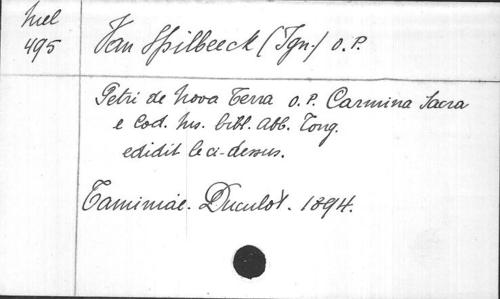 Mel
495
Van Spilbeeck (Ign.) O.P.
Petri de Nova Terra O.P. Carmina Sacra
e Cod. Ms. bibl. Abb. Tong.
edidit le ci-dessus.
Taminiae. Duculot. 1894.